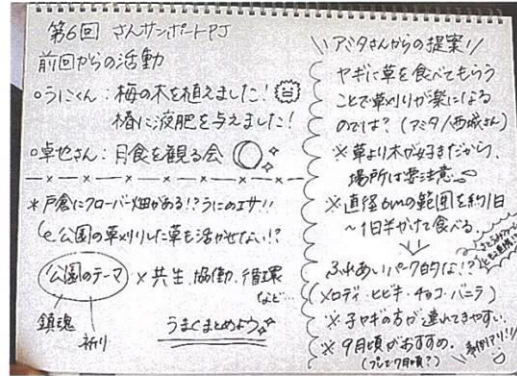 第6回 さんサンポートPJ
前回からの活動
○うにくん:梅の木を植えました!
椿に液肥を与えました!
○卓也さん:月食を観る会
*戸倉にクローバー畑がある!?うにのエサ!!
公園の草刈りした草を活かせない!?
公園のテーマ × 共生、協働、循環
など…
鎮魂
祈り
うまくまとめよう
\\アミタさんからの提案//
ヤギに草を食べてもらう
ことで草刈りが楽になる
のでは?(アミタ/西城さん)
※草より木が好きだから、
場所は要注意
※直径6mの範囲を約1日
~1日半かけて食べる。
ふれあいパーク的な!?
(メロディ・ヒビキ・チョコ・バニラ)
※子ヤギの方が連れてきやすい。
※9月頃がおすすめ。
(プレで7月頃?)